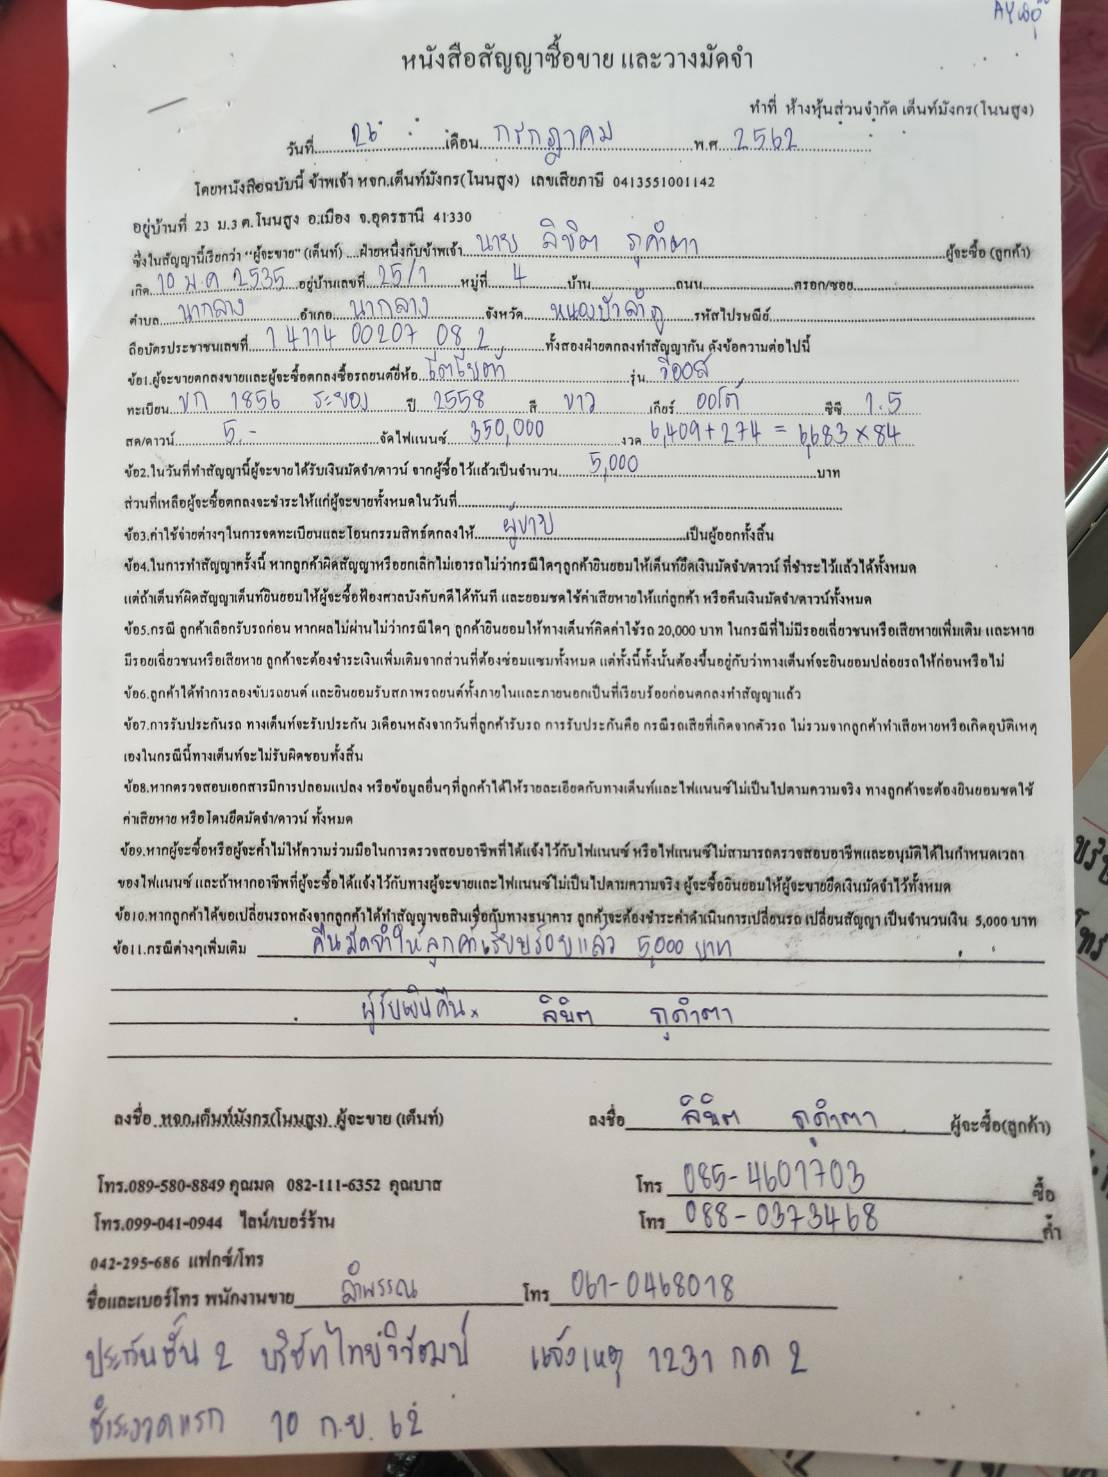 AYุธยุ
หนังสือสัญญาซื้อขาย และวางมัดจำ
ทำที่ ห้างหุ้นส่วนจำกัด เต็นท์มังกร(โนนสูง)
วันที่ 26 เดือน กรกฎาคม พ.ศ 2562
โดยหนังสือฉบับนี้ ข้าพเจ้า หจก.เต็นท์มังกร(โนนสูง) เลขเสียภาษี 0413551001142
อยู่บ้านที่ 23 ม.3 ต.โนนสูง อ.เมือง จ.อุดรธานี 41330
ซึ่งในสัญญานี้เรียกว่า "ผู้จะขาย" (เต็นท์) ....ฝ่ายหนึ่งกับข้าพเจ้า นาย ลิขิต ภูคำตา ผู้จะซื้อ (ลูกค้า)
เกิด 10 ม.ค 2535 อยู่บ้านเลขที่ 25/1 หมู่ที่ 4 บ้าน ถนน ตรอก/ซอย
ตำบล นากลาง อำเภอ นากลาง จังหวัด หนองบัวลำภู รหัสไปรษณีย์
ถือบัตรประชาชนเลขที่ 1 4114 00207 08 2 ทั้งสองฝ่ายตกลงทำสัญญากัน ดังข้อความต่อไปนี้
ข้อ1.ผู้จะขายตกลงขายและผู้จะซื้อตกลงซื้อรถยนต์ยี่ห้อ โตโยต้า รุ่น วีออส
ทะเบียน ขก 1856 ระยอง ปี 2558 สี ขาว เกียร์ ออโต้ ซีซี 1.5
สด/ดาวน์ 5.- จัดไฟแนนซ์ 350,000 งวด 6,409+274 = 6,683 x 84
ข้อ2.ในวันที่ทำสัญญานี้ผู้จะขายได้รับเงินมัดจำ/ดาวน์ จากผู้ซื้อไว้แล้วเป็นจำนวน 5,000 บาท
ส่วนที่เหลือผู้จะซื้อตกลงจะชำระให้แก่ผู้จะขายทั้งหมดในวันที่
ข้อ3.ค่าใช้จ่ายต่างๆในการจดทะเบียนและโอนกรรมสิทธ์ตกลงให้ ผู้ขาย เป็นผู้ออกทั้งสิ้น
ข้อ4.ในการทำสัญญาครั้งนี้ หากลูกค้าผิดสัญญาหรือยกเลิกไม่เอารถไม่ว่ากรณีใดๆลูกค้ายินยอมให้เต็นท์ยึดเงินมัดจำ/ดาวน์ ที่ชำระไว้แล้วได้ทั้งหมด
แต่ถ้าเต็นท์ผิดสัญญาเต็นท์ยินยอมให้ผู้จะซื้อฟ้องศาลบังคับคดีได้ทันที และยอมชดใช้ค่าเสียหายให้แก่ลูกค้า หรือคืนเงินมัดจำ/ดาวน์ทั้งหมด
ข้อ5.กรณี ลูกค้าเลือกรับรถก่อน หากผลไม่ผ่านไม่ว่ากรณีใดๆ ลูกค้ายินยอมให้ทางเต็นท์คิดค่าใช้รถ 20,000 บาท ในกรณีที่ไม่มีรอยเฉี่ยวชนหรือเสียหายเพิ่มเติม และหาย
มีรอยเฉี่ยวชนหรือเสียหาย ลูกค้าจะต้องชำระเงินเพิ่มเติมจากส่วนที่ต้องซ่อมแซมทั้งหมด แต่ทั้งนี้ทั้งนั้นต้องขึ้นอยู่กับว่าทางเต็นท์จะยินยอมปล่อยรถให้ก่อนหรือไม่
ข้อ6.ลูกค้าได้ทำการลองขับรถยนต์ และยินยอมรับสภาพรถยนต์ทั้งภายในและภายนอกเป็นที่เรียบร้อยก่อนตกลงทำสัญญาแล้ว
ข้อ7.การรับประกันรถ ทางเต็นท์จะรับประกัน 3เดือนหลังจากวันที่ลูกค้ารับรถ การรับประกันคือ กรณีรถเสียที่เกิดจากตัวรถ ไม่รวมจากลูกค้าทำเสียหายหรือเกิดอุบัติเหตุ
เองในกรณีนี้ทางเต็นท์จะไม่รับผิดชอบทั้งสิ้น
ข้อ8.หากตรวจสอบเอกสารมีการปลอมแปลง หรือข้อมูลอื่นๆที่ลูกค้าได้ให้รายละเอียดกับทางเต็นท์และไฟแนนซ์ไม่เป็นไปตามความจริง ทางลูกค้าจะต้องยินยอมชดใช้
ค่าเสียหาย หรือโดนยึดมัดจำ/ดาวน์ ทั้งหมด
ข้อ9.หากผู้จะซื้อหรือผู้จะค้ำไม่ให้ความร่วมมือในการตรวจสอบอาชีพที่ได้แจ้งไว้กับไฟแนนซ์ หรือไฟแนนซ์ไม่สามารถตรวจสอบอาชีพและอนุมัติได้ในกำหนดเวลา
ของไฟแนนซ์ และถ้าหากอาชีพที่ผู้จะซื้อได้แจ้งไว้กับทางผู้จะขายและไฟแนนซ์ไม่เป็นไปตามความจริง ผู้จะซื้อยินยอมให้ผู้จะขายยึดเงินมัดจำไว้ทั้งหมด
ข้อ10.หากลูกค้าได้ขอเปลี่ยนรถหลังจากลูกค้าได้ทำสัญญาขอสินเชื่อกับทางธนาคาร ลูกค้าจะต้องชำระค่าดำเนินการเปลี่ยนรถ เปลี่ยนสัญญา เป็นจำนวนเงิน 5,000 บาท
ข้อ11.กรณีต่างๆเพิ่มเติม คืนมัดจำให้ลูกค้าเรียบร้อยแล้ว 5,000 บาท
ผู้รับเงินคืน x ลิขิต ภูคำตา
ลงชื่อ หจก.เต็นท์มังกร(โนนสูง) ผู้จะขาย (เต็นท์) ลงชื่อ ลิขิต ภูคำตา ผู้จะซื้อ(ลูกค้า)
โทร.089-580-8849 คุณมด 082-111-6352 คุณบาส โทร 085-4601703 ซื้อ
โทร.099-041-0944 ไลน์/เบอร์ร้าน โทร 088-0373468 ค้ำ
042-295-686 แฟกซ์/โทร
ชื่อและเบอร์โทร พนักงานขาย ลำพรรณ โทร 061-0468018
ประกันชั้น 2 บริษัทไทยวิวัฒน์ แจ้งเหตุ 1231 กด 2
ชำระงวดแรก 10 ก.ย. 62